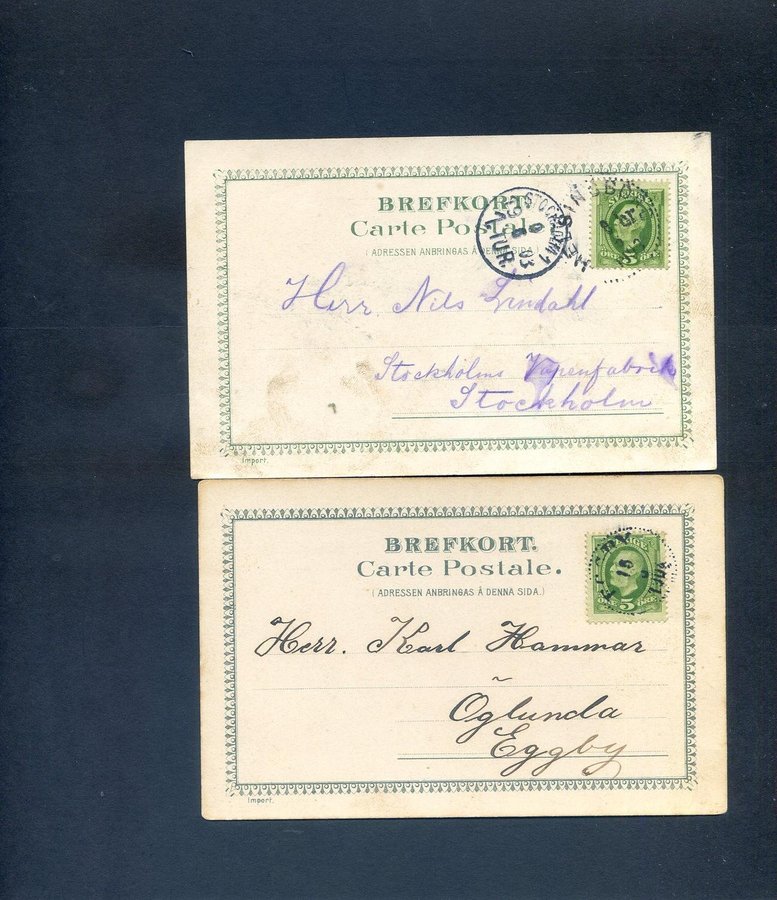 BREFKORT.
Carte Postale.
( ADRESSEN ANBRINGAS Å DENNA SIDA.)
STOCKHOLM 1
03
1 TUR
5
ÖRE
Herr Nils Lindahl
Stockholms Vapenfabrik
Stockholm
Import.
BREFKORT.
Carte Postale.
( ADRESSEN ANBRINGAS Å DENNA SIDA.)
5
Herr. Karl Hammar
Öglunda
Eggby
Import.